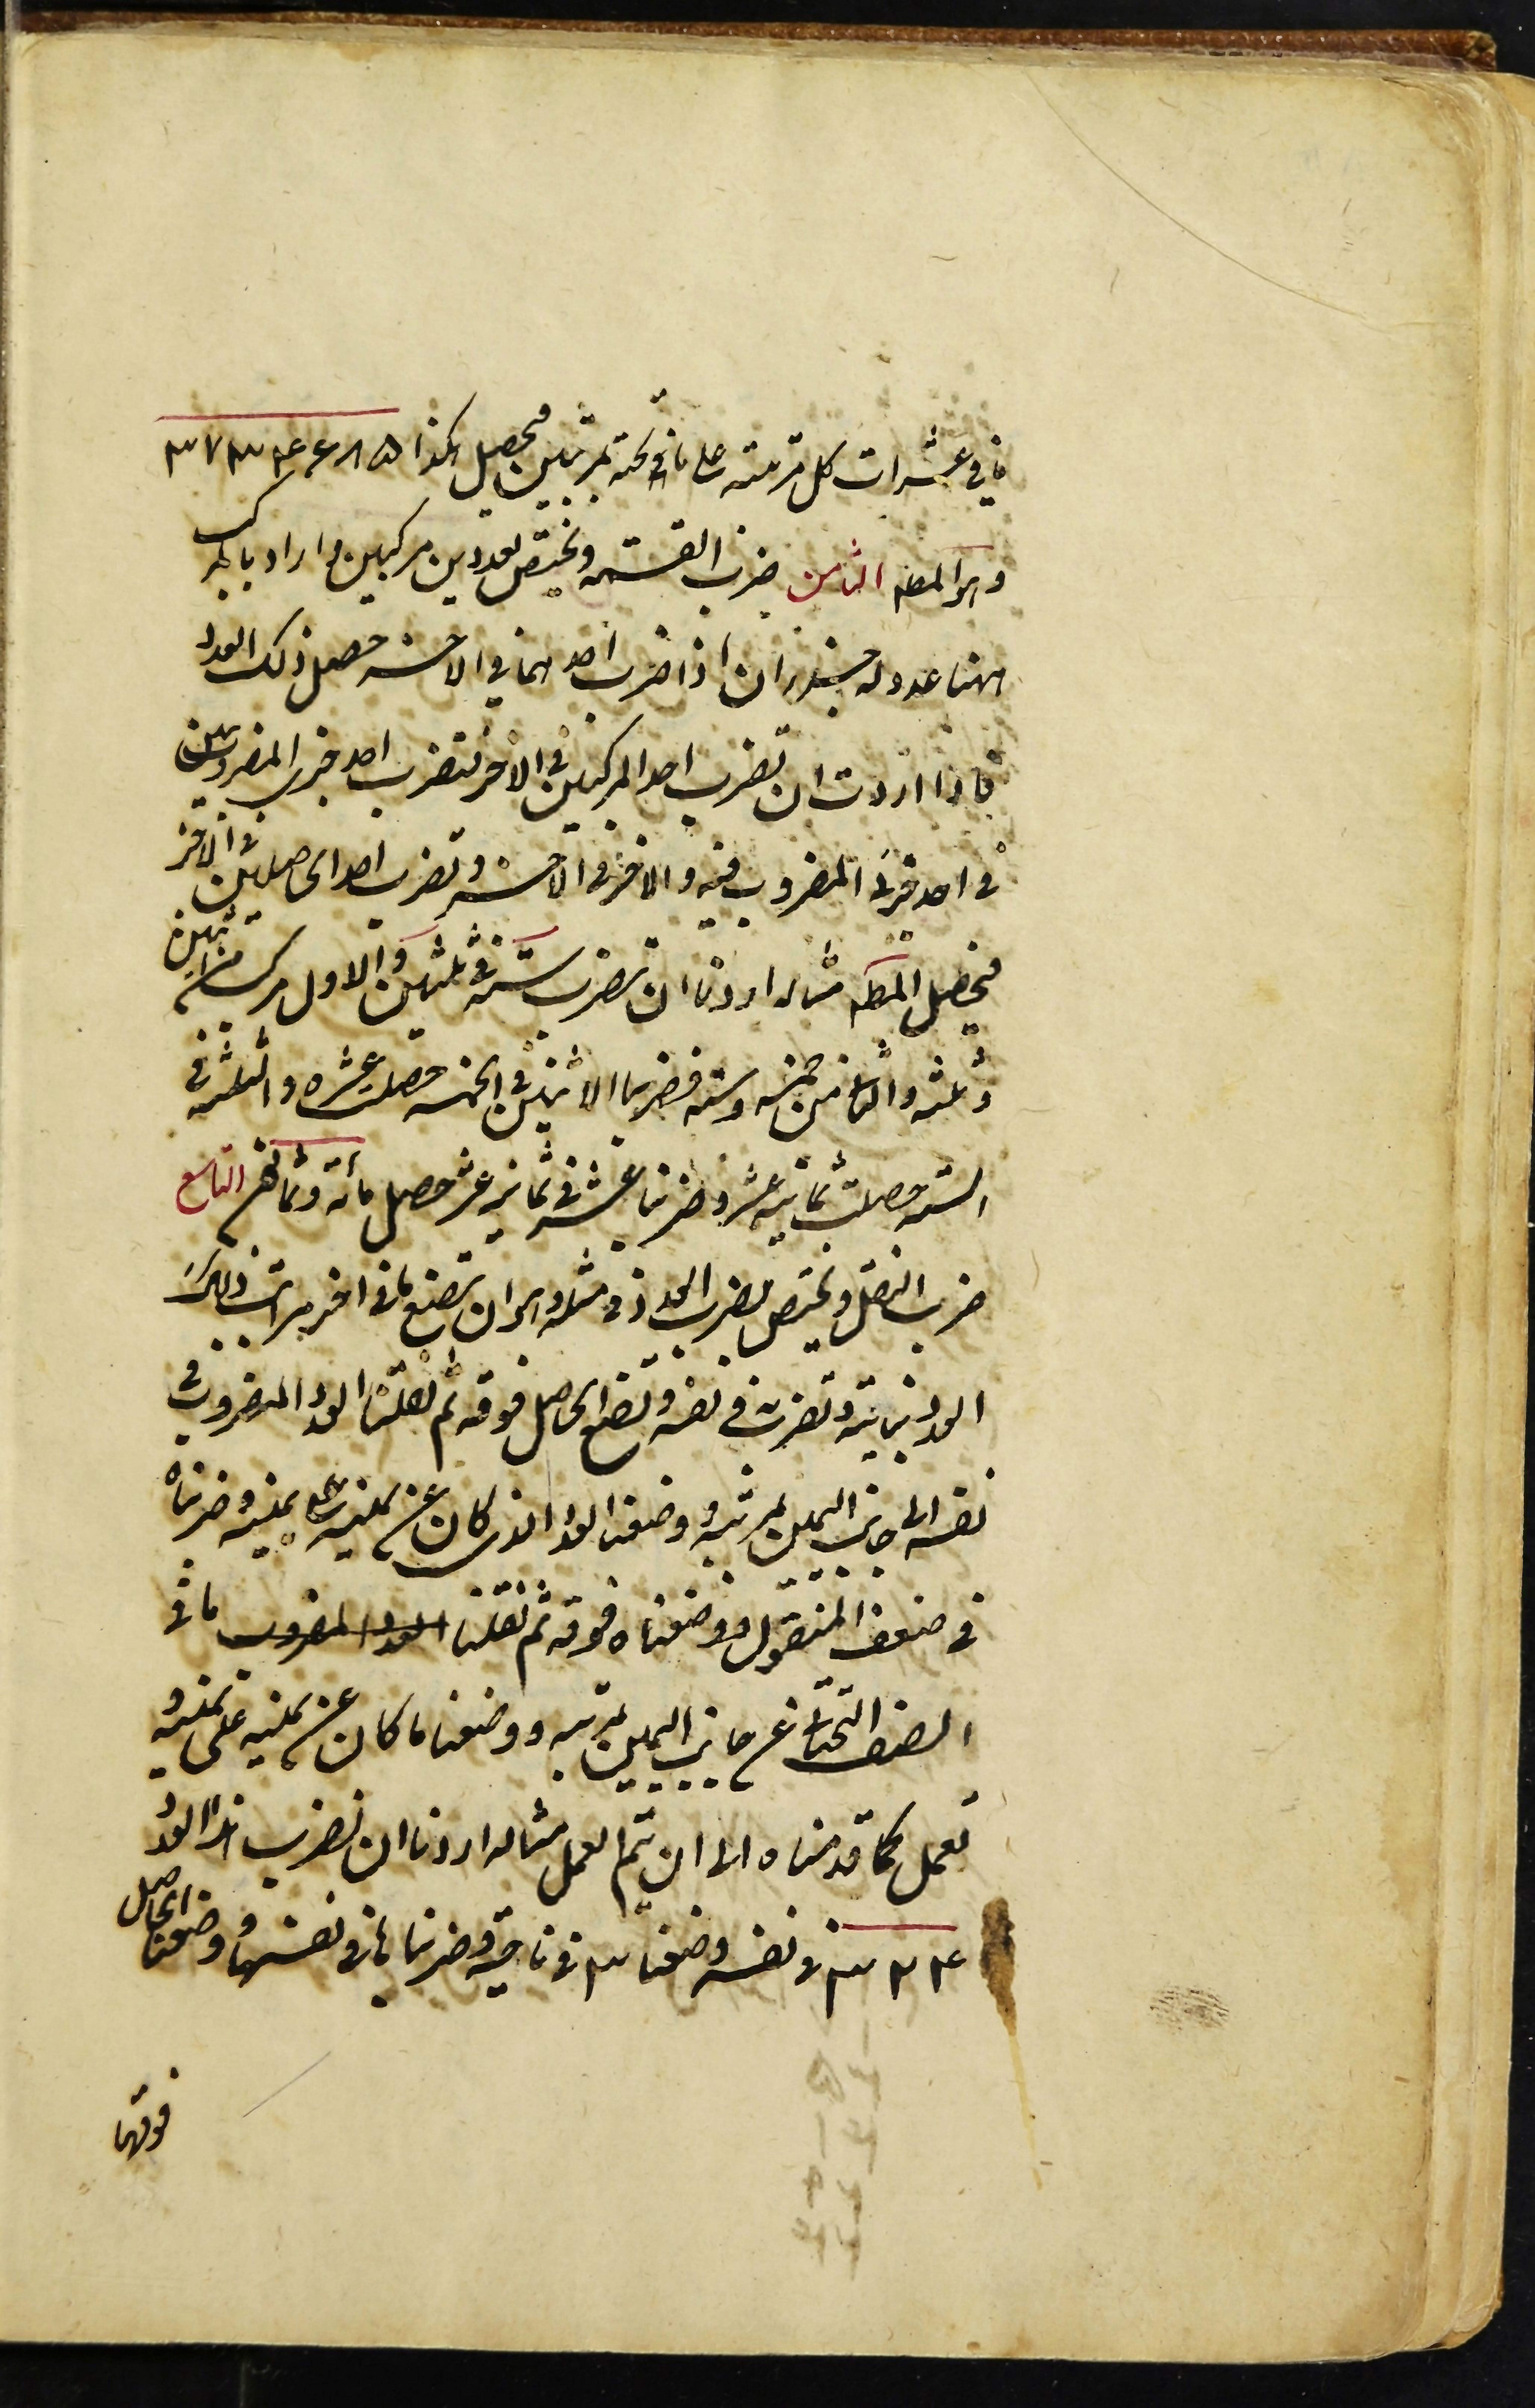 ما في عشرات كل مرتبته على ما في تحته بمرتبتين فيحصل هكذا ٣٧٣٤٤٨٥
وهو المطـ الثامن ضرب القسمة ويختص بعددين مركبين واراد بالمركب
ههنا عدد له جزءان اذا ضرب احدهما في الاخر حصل ذلك العدد
فاذا اردت ان تضرب احد المركبين في الاخر فتضرب احد جزئي المضروبين
في احد جزئي المضروب فيه والاخر في الاخر وتضرب احد الحاصلين في الاخر
فيحصل المطـ مثاله اردنا ان نضرب ستة في ثلثين والاول مركب من اثنين
وثلثه والثاني من خمسه وسته فضربنا الاثنين في الخمسه حصلت عشره والثلثه في
الستة حصلت ثمانيه عشر وضربنا عشره في ثمانيه عشر حصل مأته وثمانين التاسع
ضرب النقل ويختص بضرب العدد في مثله وهو ان تضع ما في اخر مراتب ذلك
العدد بناحيته وتضربه في نفسه وتضع الحاصل فوقه ثم نقلنا العدد المضروب في
نفسه الى جانب اليمين بمرتبه ووضعنا العدد الذي كان عن يمينه على يمينه وضربناه
في ضعف المنقول ووضعناه فوقه ثم نقلنا العدد المضروب ما في
الصف التحتاني جانب اليمين بمرتبه ووضعنا ما كان عن يمينه على يمينه و
نعمل كما قدمناه الى ان يتم العمل مثاله اردنا ان نضرب هذا العدد
٣٢٤ في نفسه وضعنا ٣ في ناحيه وضربناها في نفسها ووضعنا الحاصل
فوقها